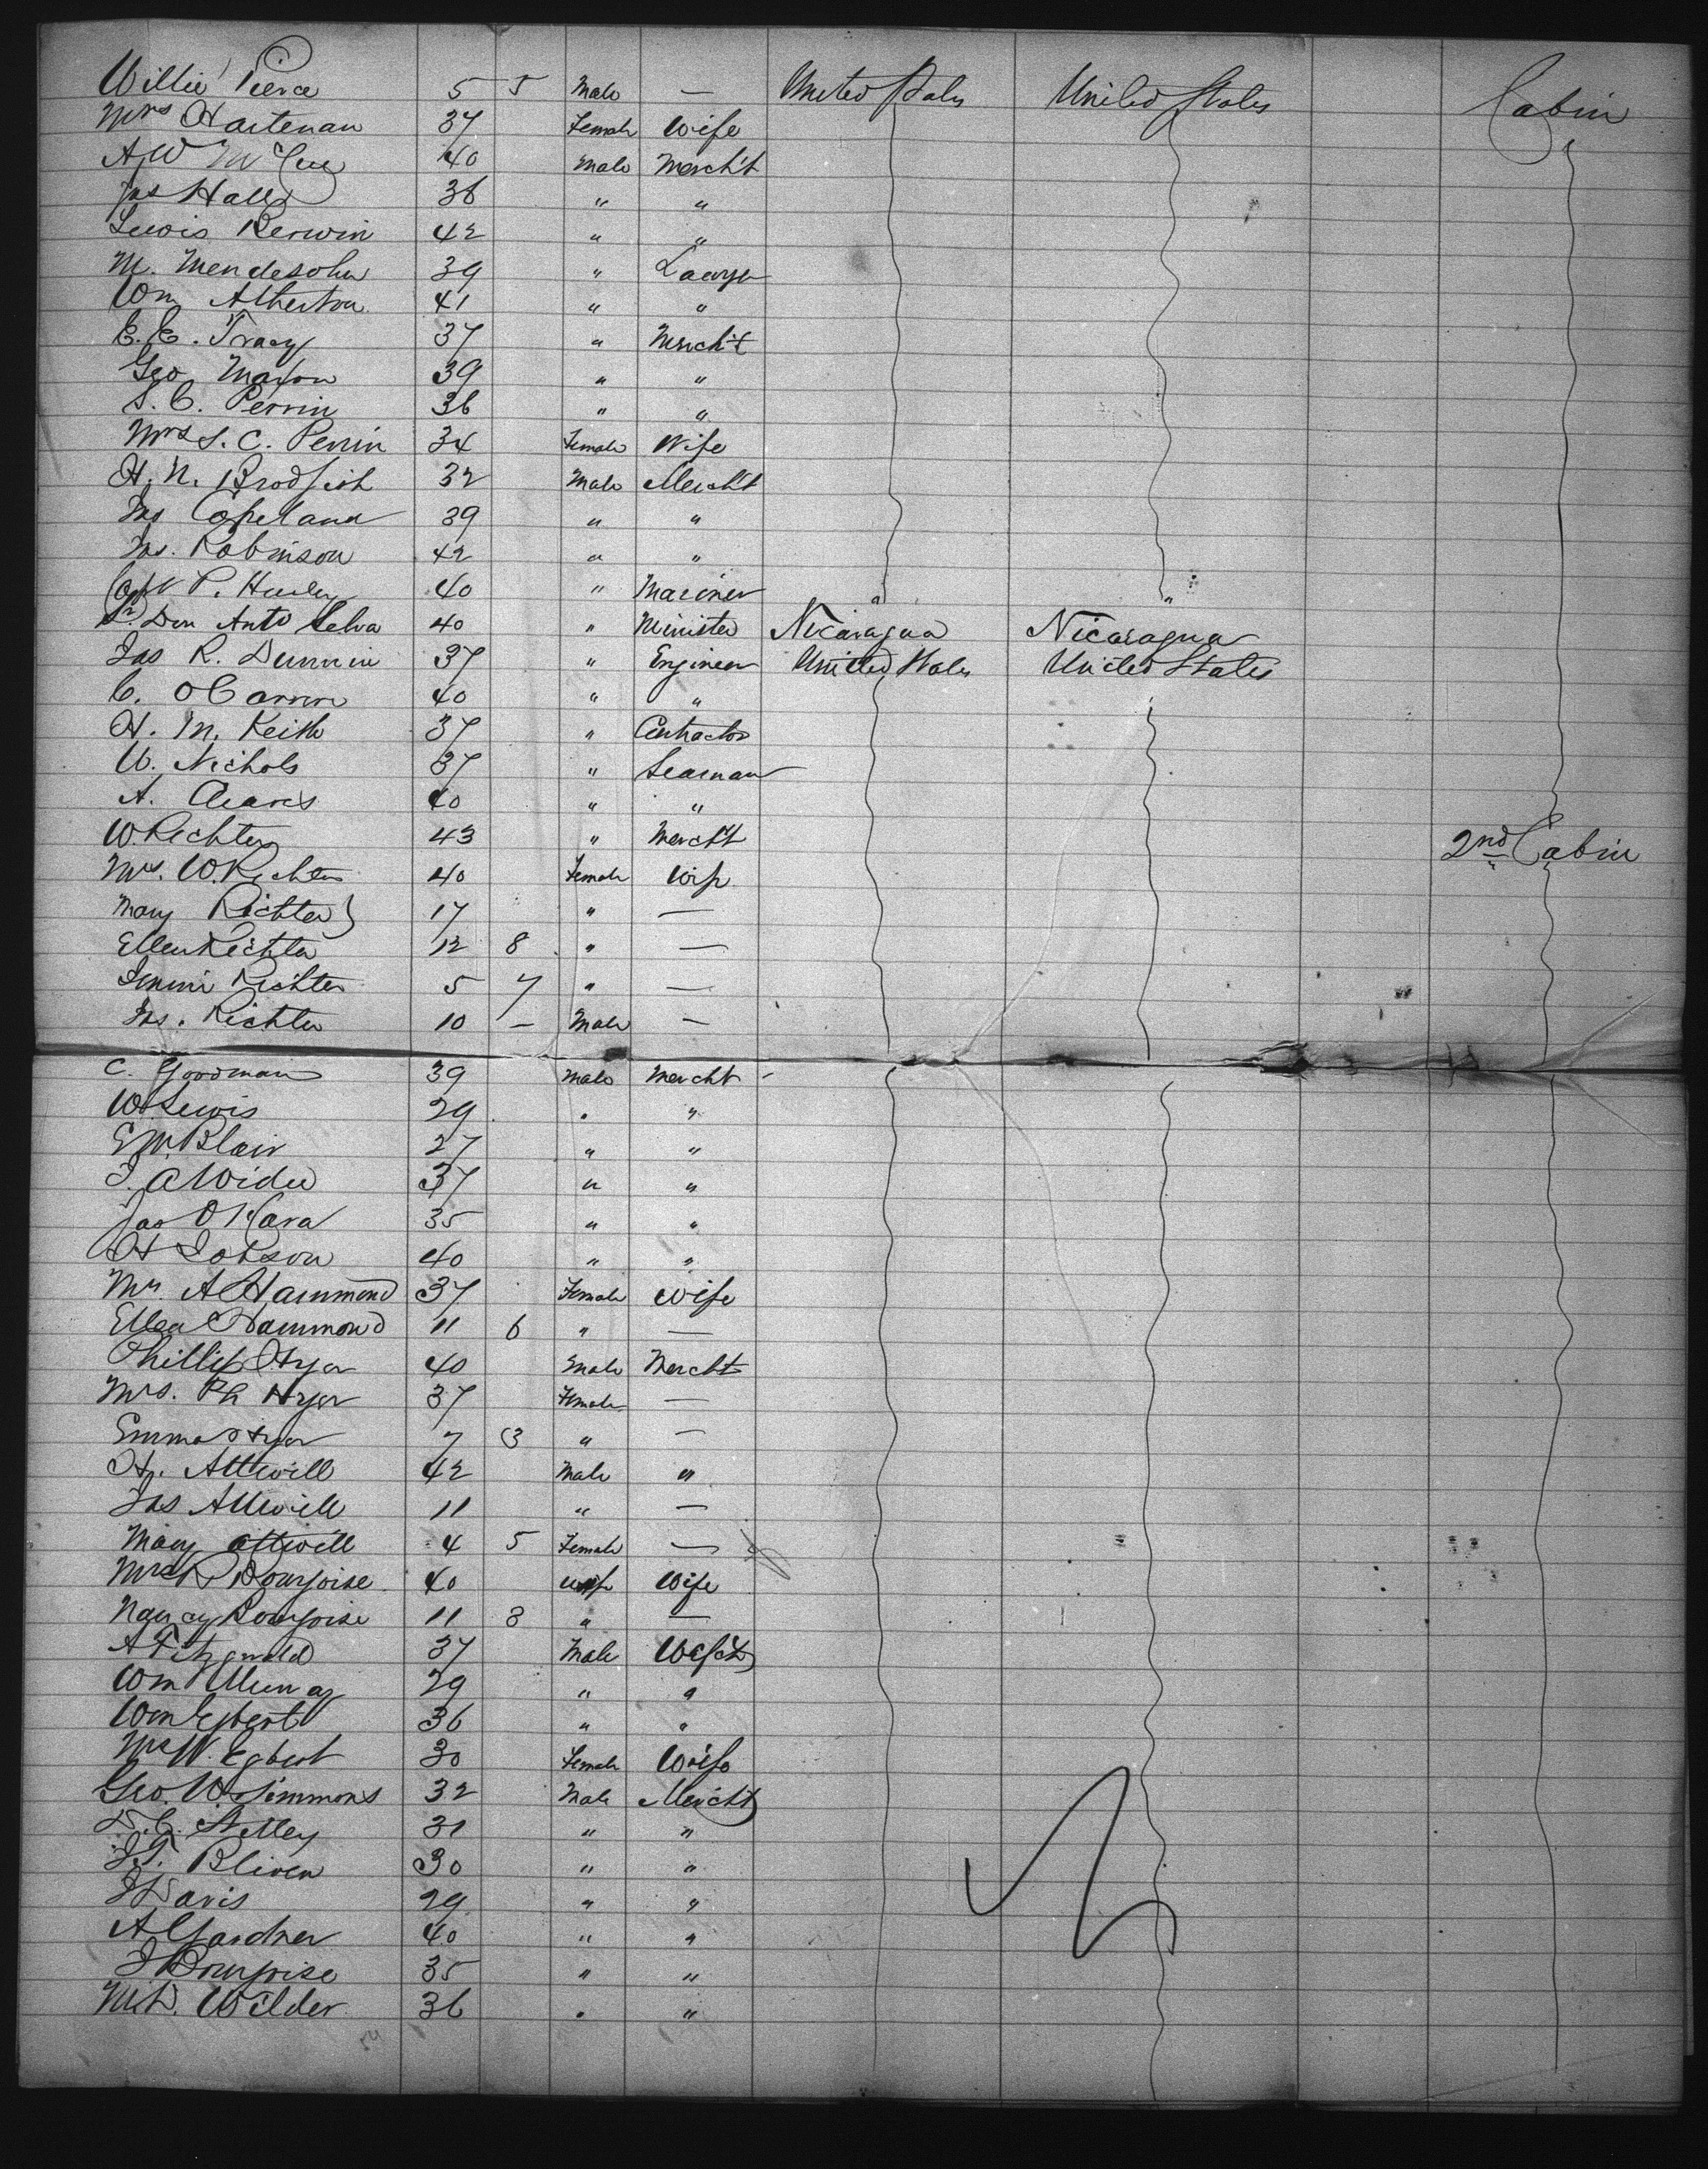 Willie Pierce 5 5 Male — United States United States Cabin
Mrs Hartenan 37 Female Wife
A W McCue 40 Male Merch't
Jas Hall 36 " "
Lewis Kerwin 42 " "
M. Mendesohn 39 " Lawyer
Wm Atherton 41 " "
E. E. Tracy 37 " Merch't
Geo Maxon 39 " "
S. C. Perrin 36 " "
Mrs S. C. Perrin 34 Female Wife
H. N. Brodfish 32 Male Mercht
Jno Copeland 39 " "
Jas. Robinson 42 " "
Capt P. Hurley 40 " Mariner " "
Sr Don Anto Selva 40 " Minister Nicaragua Nicaragua
Jas R. Dunnin 37 " Engineer United States United States
C. 40 " "
H. M. Keith 37 " Contractor
W. Nichols 37 " Seaman
A. 40 " "
W Richter 43 " Mercht 2nd Cabin
Mrs. W. Richter 40 Female Wife "
Mary Richter 17 " —
Ellen Richter 12 8 " —
Richter 5 7 " —
Jas. Richter 10 — Male —
C. Goodman 39 Male Mercht
W Lewis 29 " "
E M Blair 27 " "
J. A Wider 37 " "
Jas O'Hara 35 " "
H Jobson 40 " "
Mrs A Hammond 37 Female Wife
Ellen Hammond 11 6 " —
Phillip Hyer 40 Male Mercht
Mrs. Ph Hyer 37 Female —
Emma Hyer 7 3 " —
H. Attwill 42 Male "
Jas Attwill 11 " —
Mary Attwill 4 5 Female —
Mrs R Bourjoise 40 Wife
Nancy Bourjoise 11 3 " —
A Fitzgerald 37 Male
Wm Murray 29 " "
Wm Egbert 36 " "
Mrs W. Egbert 30 Female Wife
Geo. W. Simmons 32 Male Mercht
D. C. 31 " "
J T. Bliven 30 " "
J Davis 29 " "
A Gardner 40 " "
J Bourjoise 35 " "
Wilder 36 " "